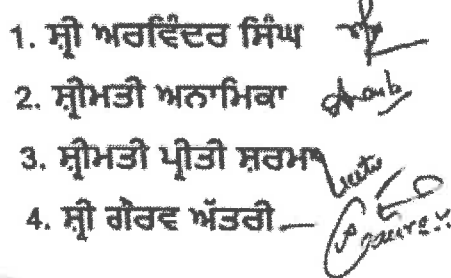 1. ਸ਼੍ਰੀ ਅਰਵਿੰਦਰ ਸਿੰਘ
2. ਸ਼੍ਰੀਮਤੀ ਅਨਾਮਿਕਾ
3. ਸ਼੍ਰੀਮਤੀ ਪ੍ਰੀਤੀ ਸ਼ਰਮਾ
4. ਸ਼੍ਰੀ ਗੌਰਵ ਅੱਤਰੀ